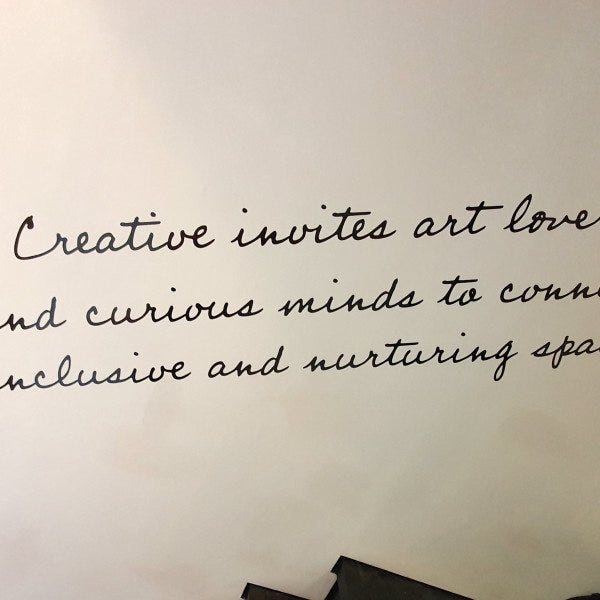 Creative invites art love
nd curious minds to conn
nclusive and nurturing spa